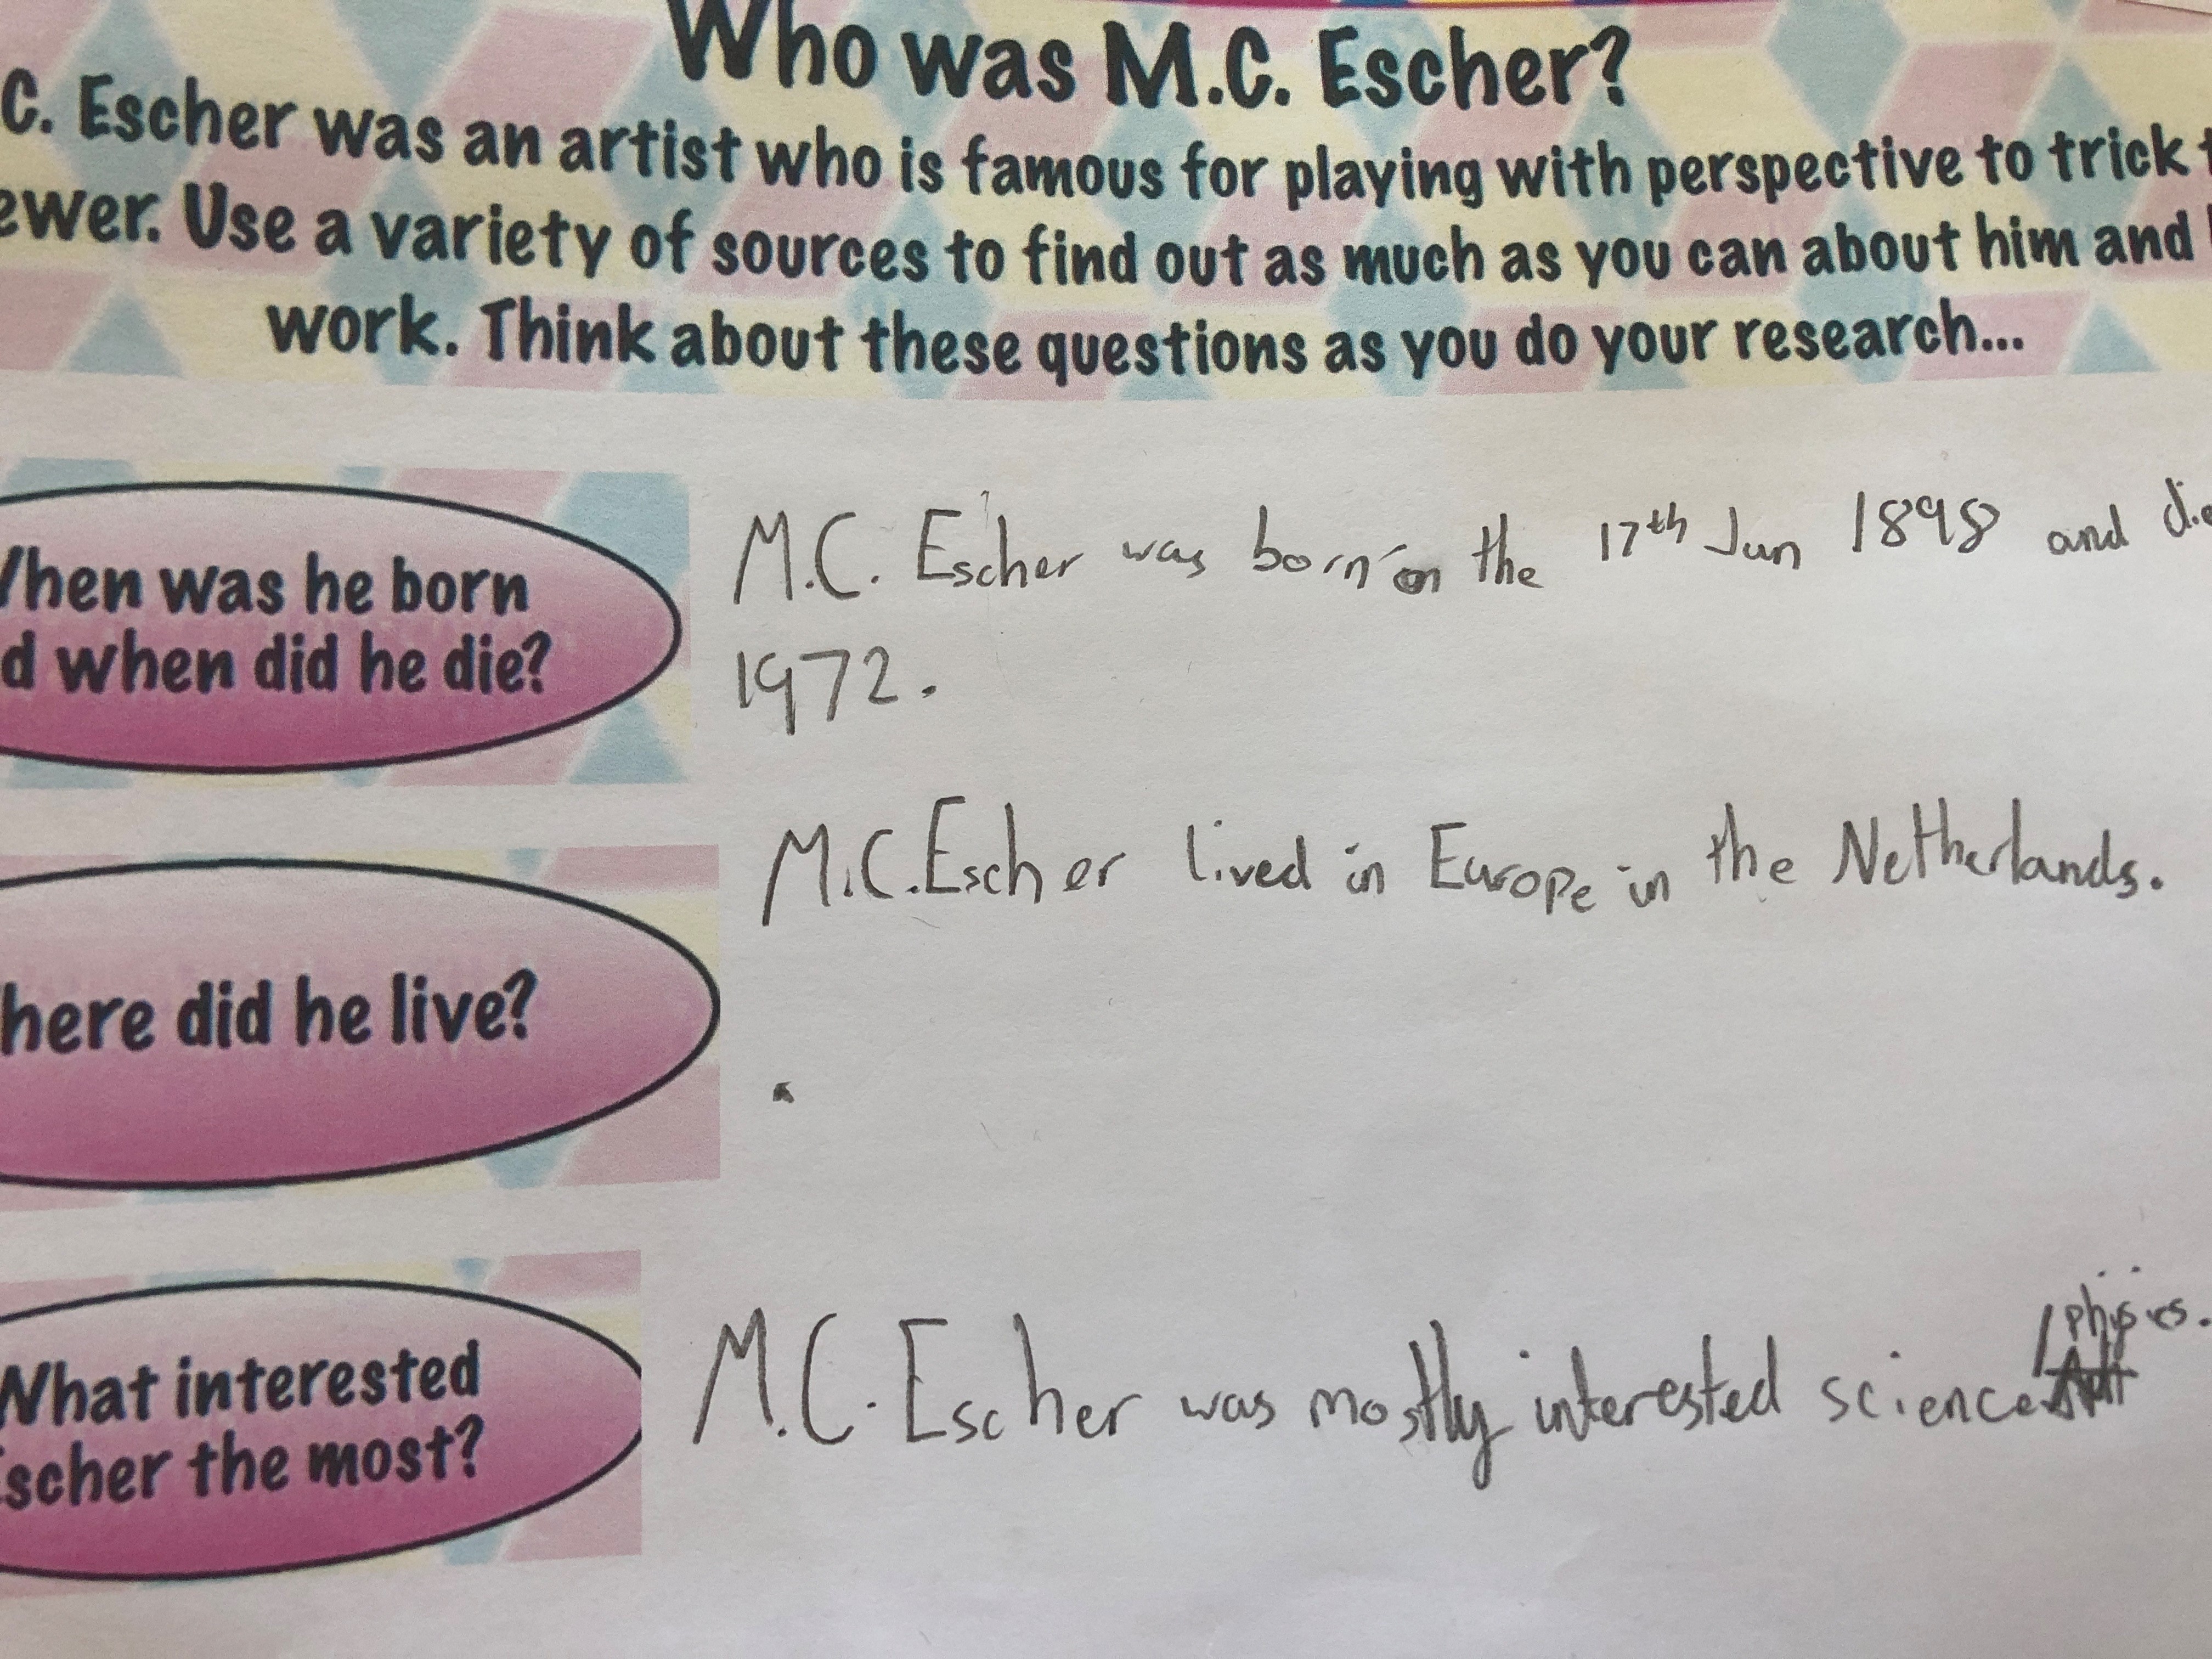 Who was M.C. Escher?
C. Escher was an artist who is famous for playing with perspective to trick t
ewer. Use a variety of sources to find out as much as you can about him and
work. Think about these questions as you do your research...
When was he born
d when did he die?
M.C. Escher was born on the 17th Jun 1898 and die
1972.
here did he live?
M.C. Escher lived in Europe in the Netherlands.
What interested
scher the most?
M.C. Escher was mostly interested science